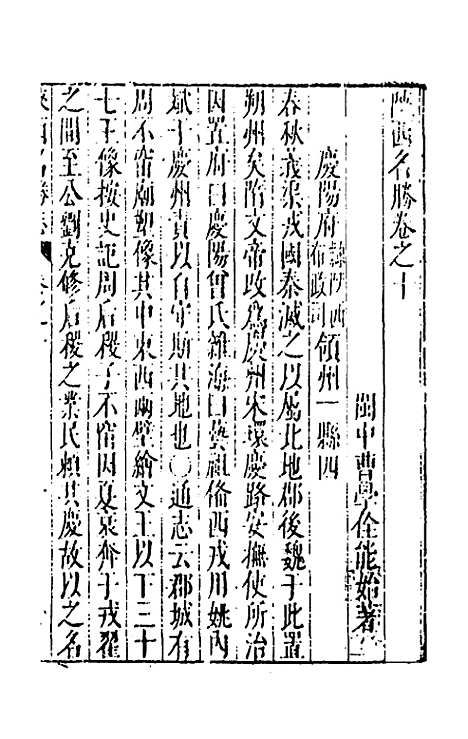 陝西名勝卷之十
閩中曹學佺能始著
慶陽府隸陝西布政司領州一縣四
春秋義渠戎國秦滅之以屬北地郡後魏于此置
朔州矣隋文帝改爲慶州宋環慶路安撫使所治
因置府曰慶陽曾氏雜海曰藝祖俻西戎用姚內
斌于慶州責以自守斯其地也○通志云郡城有
周不窋廟塑像其中東西兩壁繪文王以下三十
七王像按史記周后稷子不窋因夏衰奔于戎翟
之間至公劉克修后稷之業民賴其慶故以之名
陝西名勝志 卷之